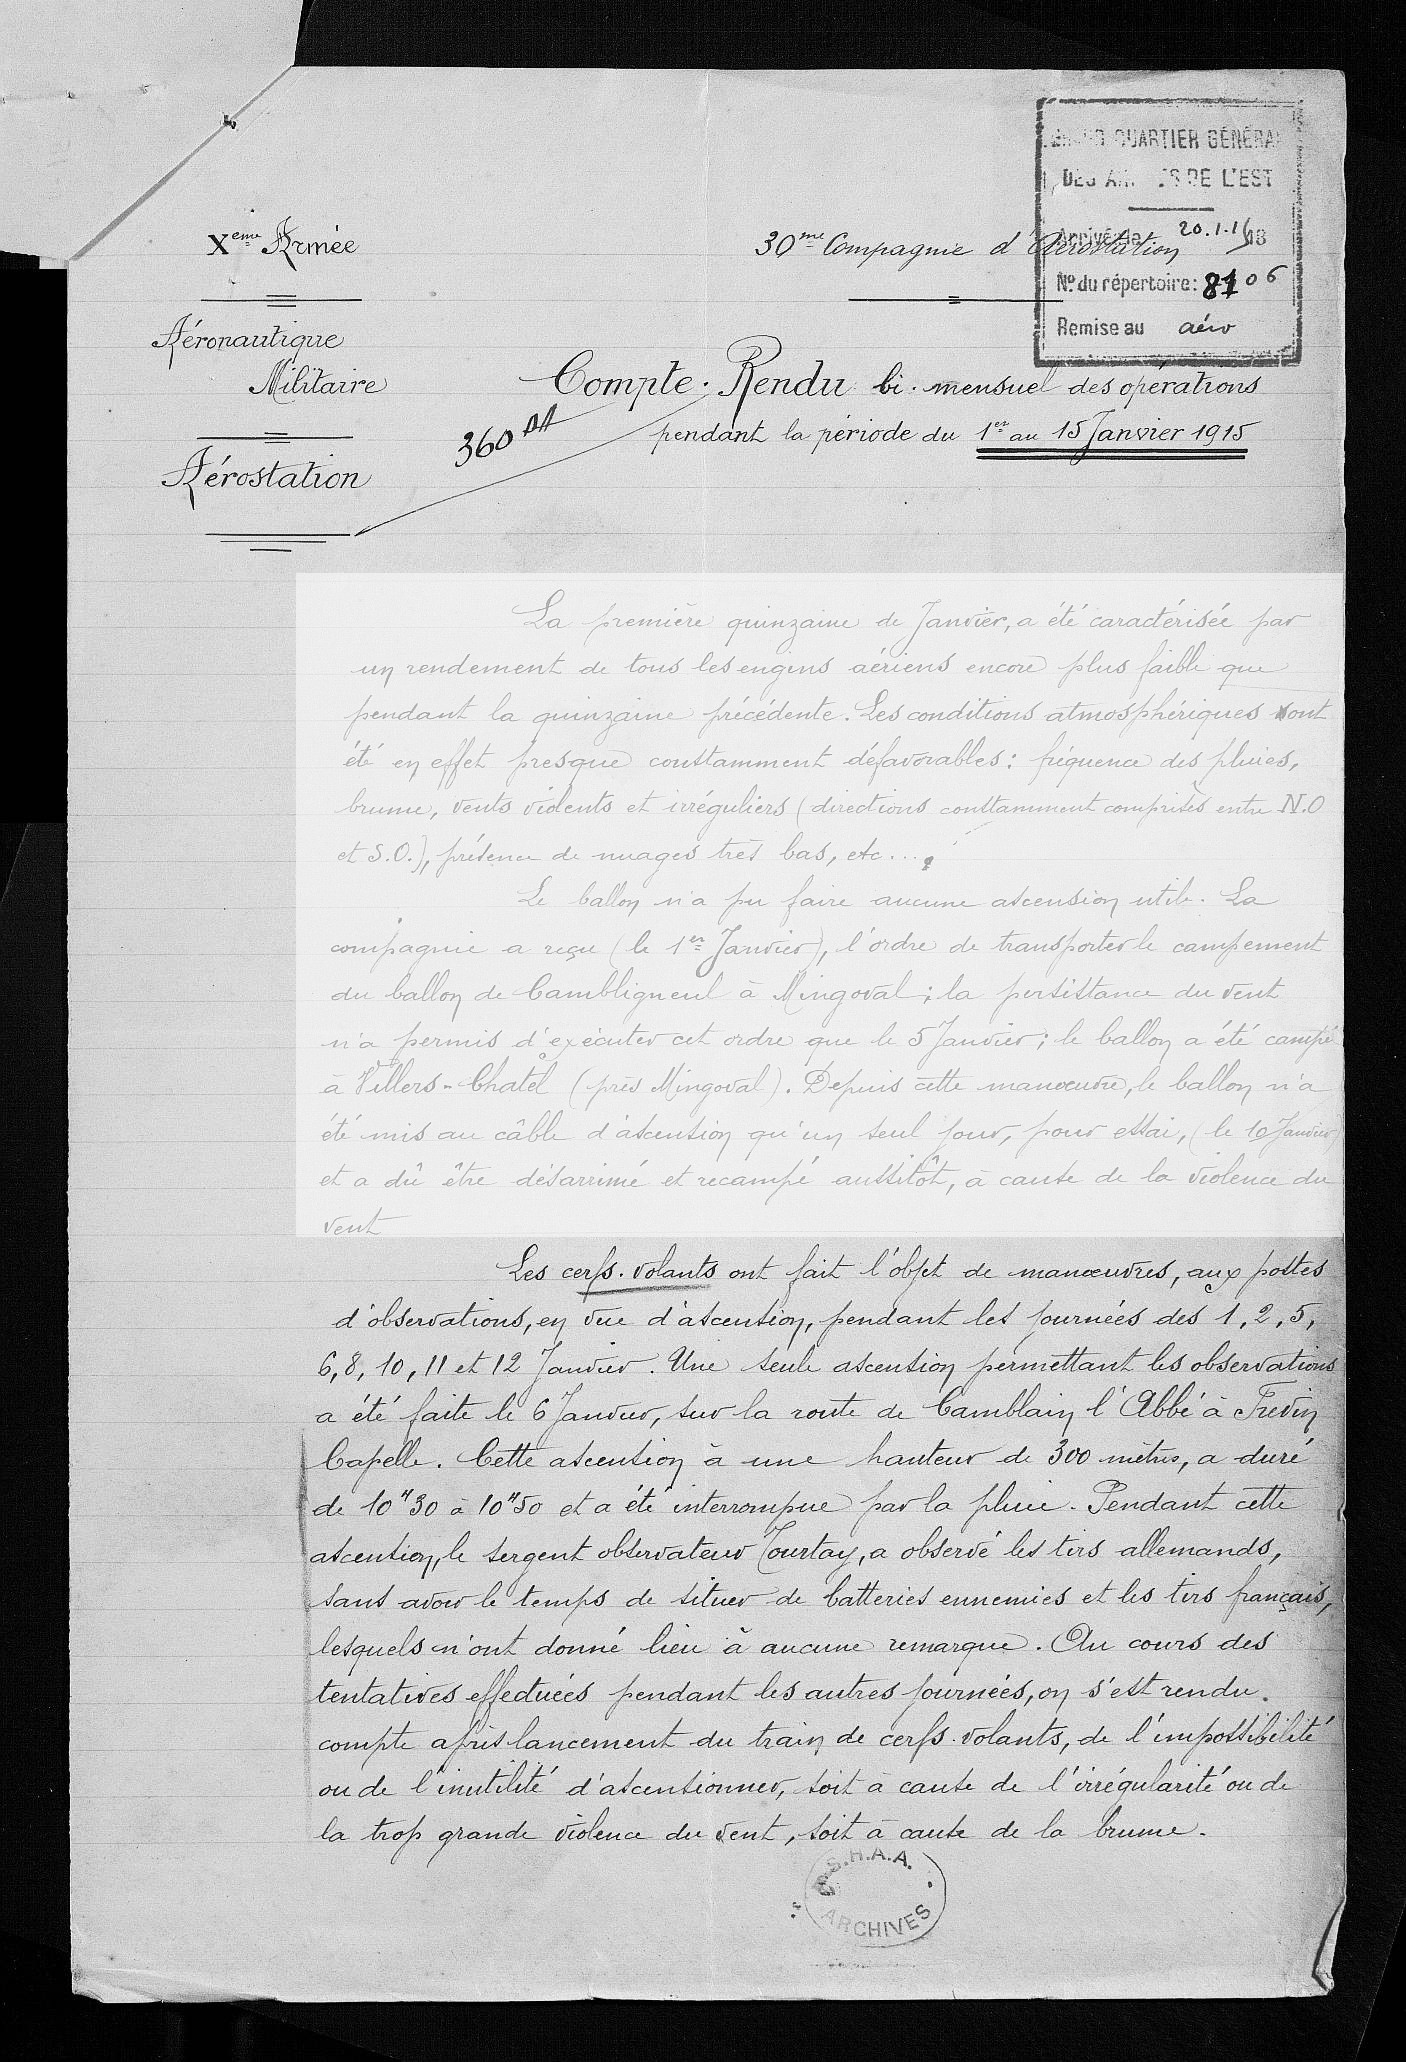 GRAND QUARTIER GÉNÉRAL
DES ARMÉES DE L'EST
Arrivée le 20.1.15
N° du répertoire: 8106
Remise au aéro
Xème Armée
30me Compagnie d'Aérostation
Aéronautique
Militaire
Compte-Rendu bi-mensuel des opérations
360 DA
pendant la période du 1er au 15 Janvier 1915
Aérostation
La première quinzaine de Janvier, a été caractérisée par
un rendement de tous les engins aériens encore plus faible que
pendant la quinzaine précédente. Les conditions atmosphériques ont
été en effet presque constamment défavorables: fréquence des pluies,
brume, vents violents et irréguliers (directions constamment comprises entre N.O
et S.O.), présence de nuages très bas, etc...
Le ballon n'a pu faire aucune ascension utile. La
compagnie a reçu (le 1er Janvier), l'ordre de transporter le campement
du ballon de Cambligneul à Mingoval; la persistance du vent
n'a permis d'exécuter cet ordre que le 5 Janvier; le ballon a été campé
à Villers-Chatel (près Mingoval). Depuis cette manœuvre, le ballon n'a
été mis au câble d'ascension qu'un seul jour, pour essai, (le 10 Janvier)
et a dû être désarrimé et recampé aussitôt, à cause de la violence du
vent
Les cerfs-volants ont fait l'objet de manœuvres, aux postes
d'observations, en vue d'ascension, pendant les journées des 1, 2, 5,
6, 8, 10, 11 et 12 Janvier. Une seule ascension permettant les observations
a été faite le 6 Janvier, sur la route de Camblain l'Abbé à Frévin
Capelle. Cette ascension à une hauteur de 300 mètres, a duré
de 10H30 à 10H50 et a été interrompue par la pluie. Pendant cette
ascension, le sergent observateur Tourtay, a observé les tirs allemands,
sans avoir le temps de situer de batteries ennemies et les tirs français,
lesquels n'ont donné lieu à aucune remarque. Au cours des
tentatives effectuées pendant les autres journées, on s'est rendu
compte après lancement du train de cerfs-volants, de l'impossibilité
ou de l'inutilité d'ascensionner, soit à cause de l'irrégularité ou de
la trop grande violence du vent, soit à cause de la brume.
S.H.A.A.
ARCHIVES